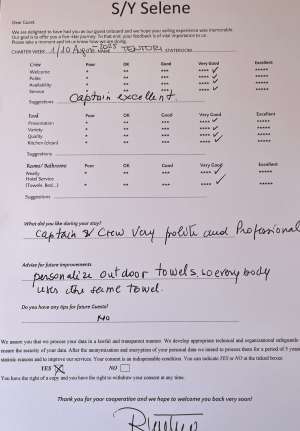 S/Y Selene
Dear Guest
We are delighted to have had you as our guest onboard and we hope your sailing experience was memorable.
Our goal is to offer you a five-star journey. To that end, your feedback is of vital importance to us.
Please take a moment and let us know how we are doing.
CHARTER WEEK: 1/10 August 2025 NAME
Crew Poor OK Good Very Good Excellent
Welcome * ** *** **** ✓ *****
Polite * ** *** **** ✓ *****
Availability * ** *** **** ✓ *****
Service * ** *** **** ✓ *****
Suggestions Captain excellent.
Food Poor OK Good Very Good Excellent
Presentation * ** *** **** ✓ *****
Variety * ** *** **** ✓ *****
Quality * ** *** **** ✓ *****
Kitchen (clean) * ** *** **** ✓ *****
Suggestions
Rooms/ Bathrooms Poor OK Good Very Good Excellent
Neatly * ** *** **** ✓ *****
Hotel Service
(Towels, Bed...) * ** *** **** ✓ *****
Suggestions
What did you like during your stay?
Captain & Crew very polite and Professional
Advice for future improvements
personalize outdoor towels, so every body
uses the same towel.
Do you have any tips for future Guests?
NO
We assure you that we process your data in a lawful and transparent manner. We develop appropriate technical and organizational safeguards
ensure the security of your data. After the anonymization and encryption of your personal data we intend to process them for a period of 5 years
statistic reasons and to improve our services. Your consent is an indispensable condition. You can indicate YES or NO at the ticked boxes:
YES X NO
You have the right of a copy and you have the right to withdraw your consent at any time.
Thank you for your cooperation and we hope to welcome you back very soon!